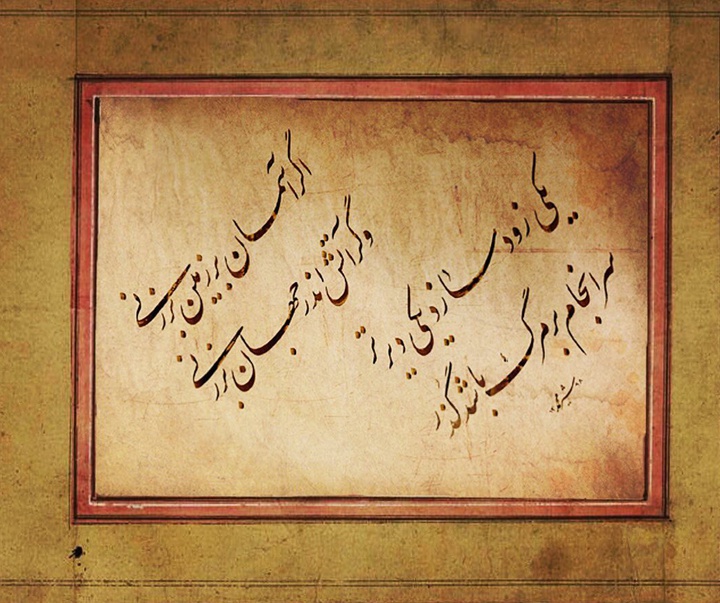 یکی زود سازد یکی دیرتر
سرانجام بر مرگ باشد گذر
اگر آسمان بر زمین بر زنی
وگر آتش اندر جهان بر زنی